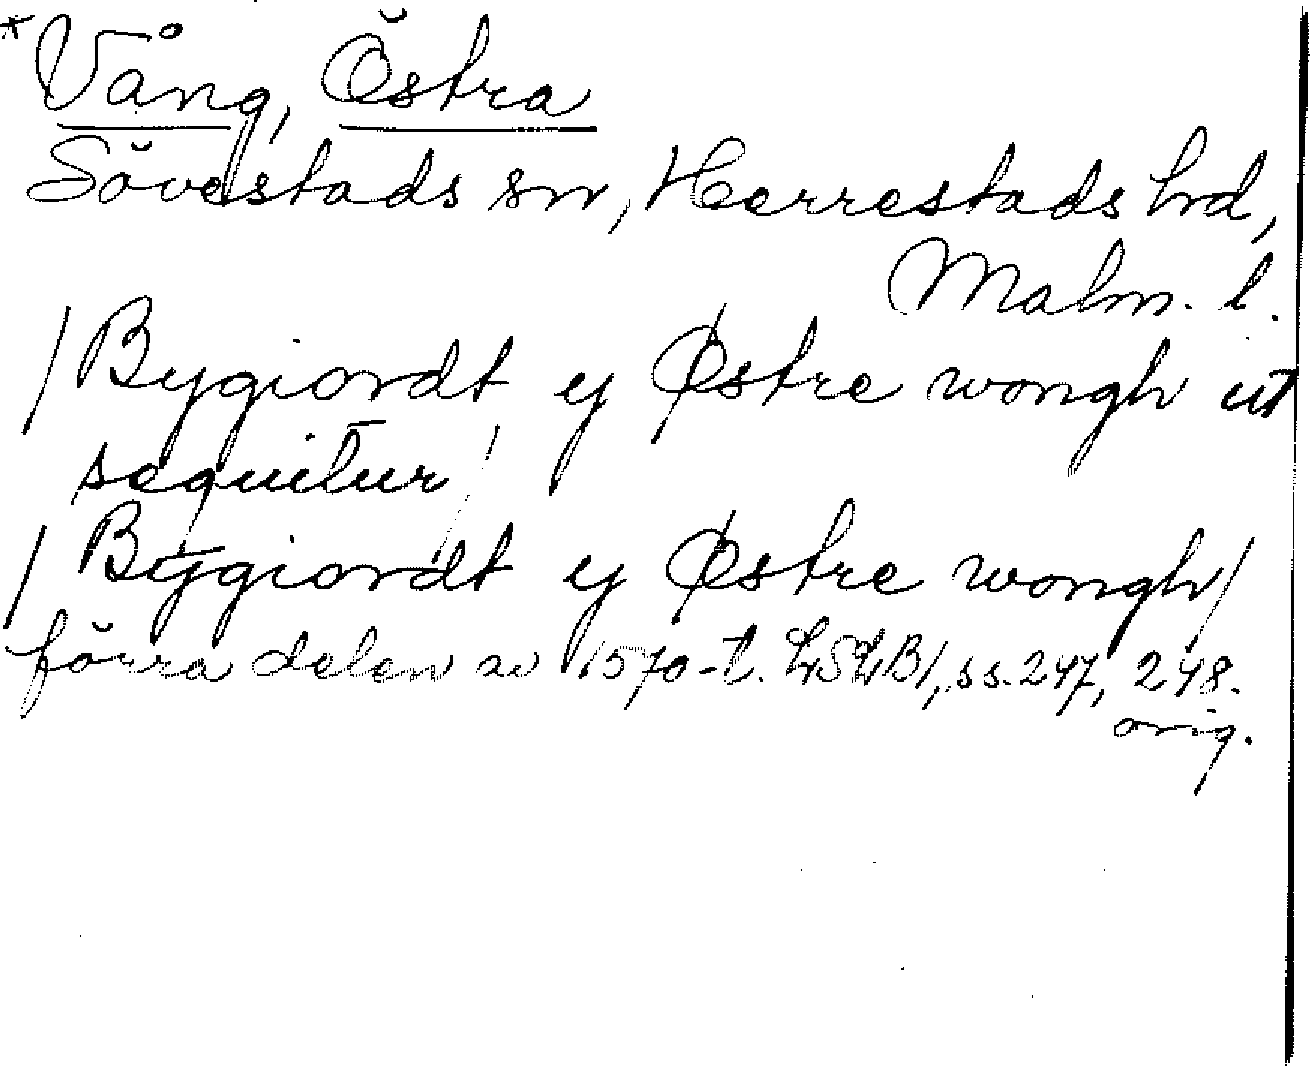 *Vång, Östra
Sövestads sn, Herrestads hd,
Malm. l.
/Bygiordt ey Østre wongh ut
sequitur/
/Bygiordt ey Østre wongh/
förra delen av 1570-t. LSLB1, ss. 247, 248.
orig.